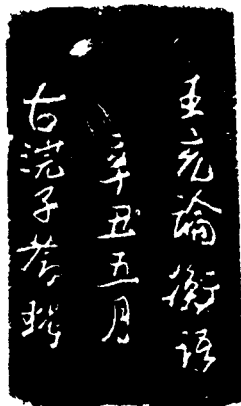 王充論衡語
辛丑五月
古浣子